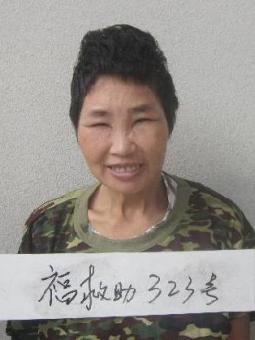 福救助323号